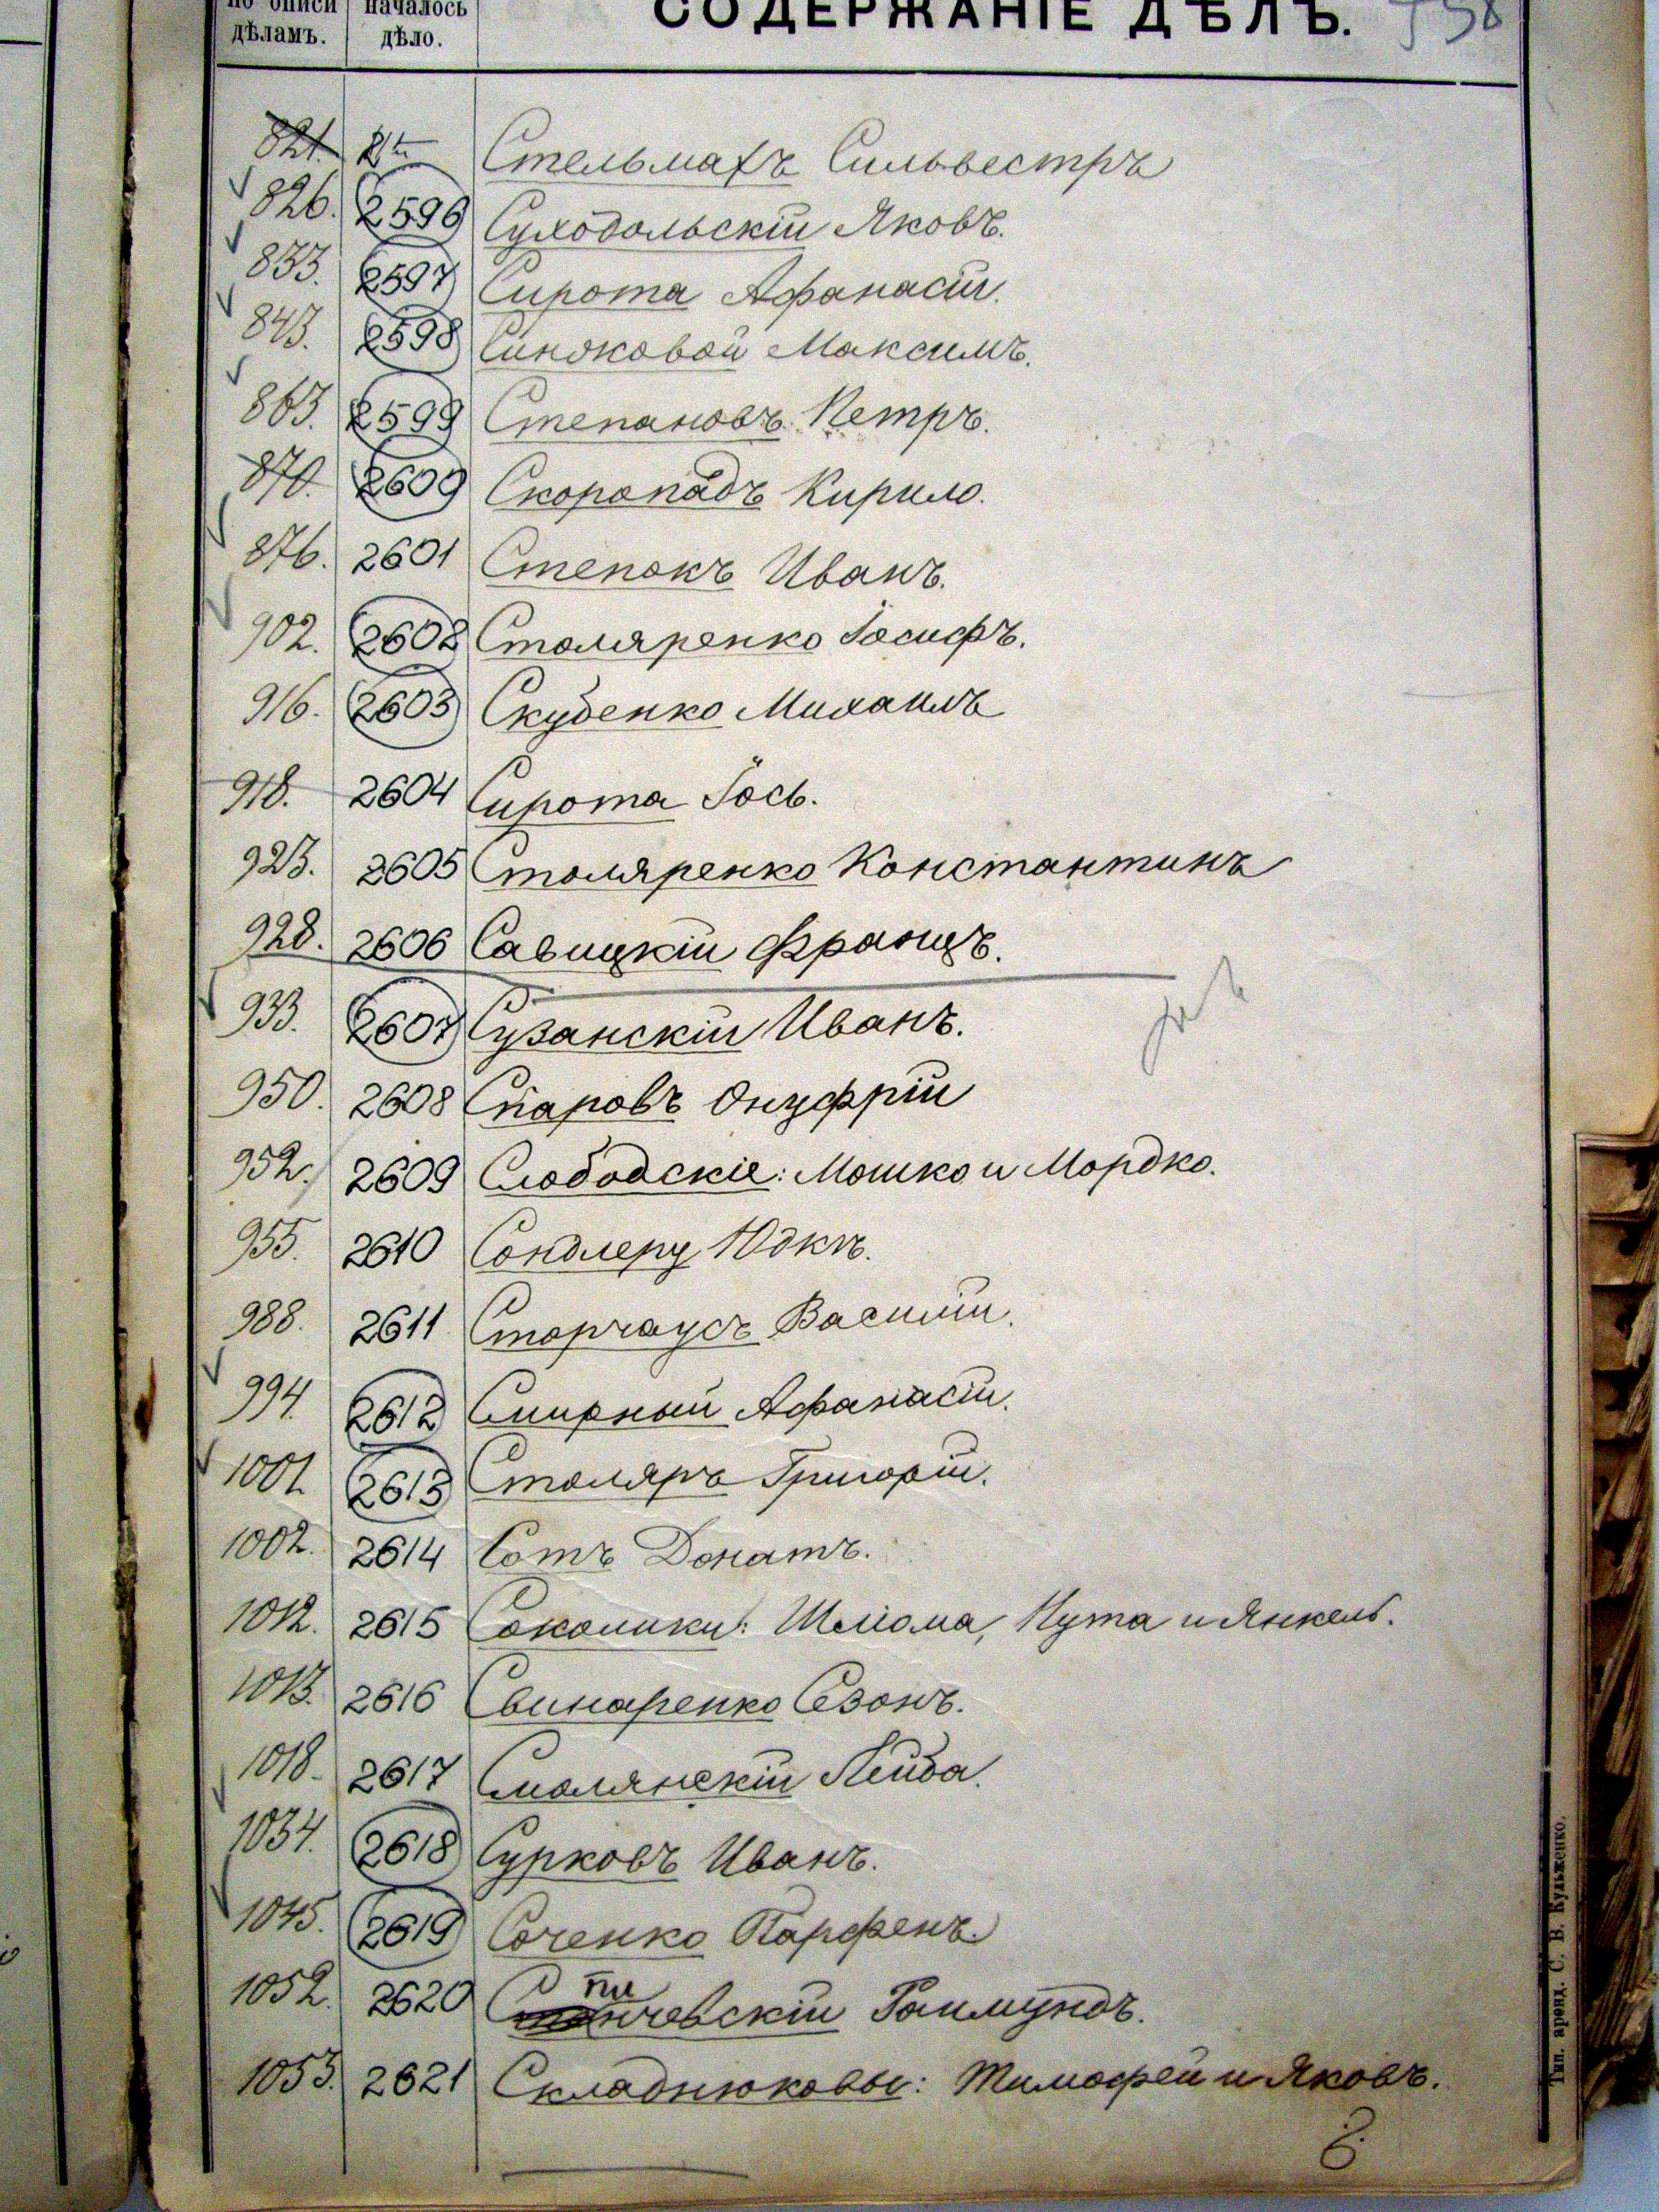 по описи дѣламъ. началось дѣло. СОДЕРЖАНІЕ ДѢЛЪ. 738
821. Стельмахъ Сильвестръ
826. 2596 Суходольскій Яковъ.
833. 2597 Сирота Афанасій.
843. 2598 Синяковой Максимъ.
863. 2599 Степановъ Петръ.
870. 2600 Скоропадъ Кирило.
876. 2601 Степокъ Иванъ.
902. 2602 Столяренко Іосифъ.
916. 2603 Скубенко Михаилъ
918. 2604 Сирота Іось.
923. 2605 Столяренко Константинъ
928. 2606 Савицкій Францъ.
933. 2607 Сузанскій Иванъ.
950. 2608 Онуфрій
952. 2609 Слободскіе: Мошко и Мордко.
955. 2610 Сондлеру Юдкѣ.
988. 2611 Сторчаусъ Василій.
994. 2612 Смирный Афанасій.
1001. 2613 Столяръ Григорій.
1002. 2614 Сотъ Донатъ.
1012. 2615 Соколики: Шліома, Нута и Янкель.
1013. 2616 Свинаренко Сезонъ.
1018. 2617 Смолянскій Лейба.
1034. 2618 Сурковъ Иванъ.
1045. 2619 Соченко Парфенъ.
1052. 2620 Спичевскій Раймундъ.
1053. 2621 Складнюковы: Тимофей и Яковъ.
Тип. аренд. С. В. Кульженко.